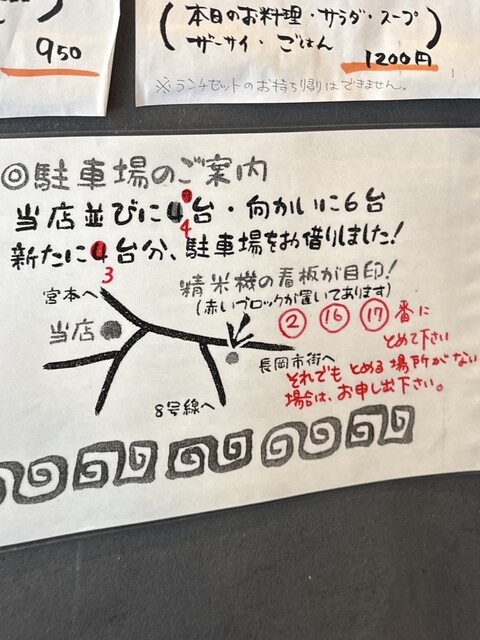 950
(本日のお料理・サラダ・スープ
ザーサイ・ごはん)
1200円
※ランチセットのお持ち帰りはできません。
◎駐車場のご案内
当店並びに4台・向かいに6台
4
新たに4台分、駐車場をお借りしました!
3
精米機の看板が目印!
(赤いブロックが置いてあります)
宮本へ
② ⑯ ⑰ 番に
とめて下さい
当店
長岡市街へ
それでもとめる場所がない
場合は、お申し出下さい。
8号線へ